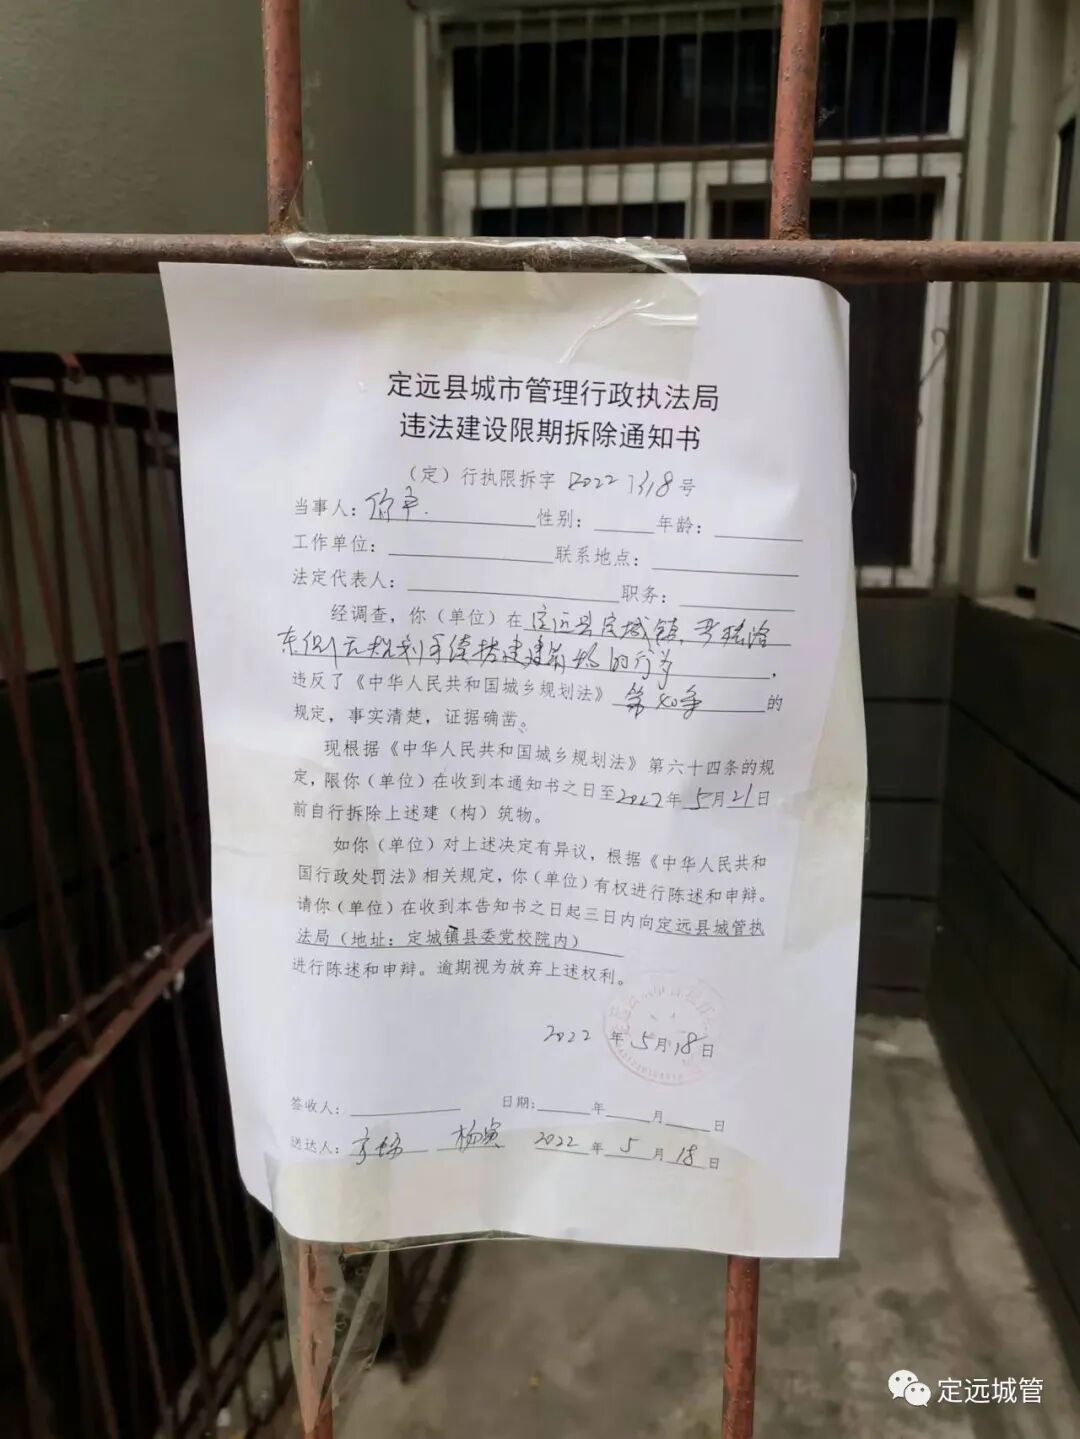 定远县城市管理行政执法局
违法建设限期拆除通知书
（定）行执限拆字〔2022〕318号
当事人： 性别： 年龄：
工作单位： 联系地点：
法定代表人： 职务：
经调查，你（单位）在定远县定城镇
东侧无规划手续搭建建筑物的行为，
违反了《中华人民共和国城乡规划法》第40条的
规定，事实清楚，证据确凿。
现根据《中华人民共和国城乡规划法》第六十四条的规
定，限你（单位）在收到本通知书之日至2022年5月21日
前自行拆除上述建（构）筑物。
如你（单位）对上述决定有异议，根据《中华人民共和
国行政处罚法》相关规定，你（单位）有权进行陈述和申辩。
请你（单位）在收到本告知书之日起三日内向定远县城管执
法局（地址：定城镇县委党校院内）
进行陈述和申辩。逾期视为放弃上述权利。
2022年5月18日
签收人： 日期： 年 月 日
送达人： 杨寅 2022年5月18日
定远城管